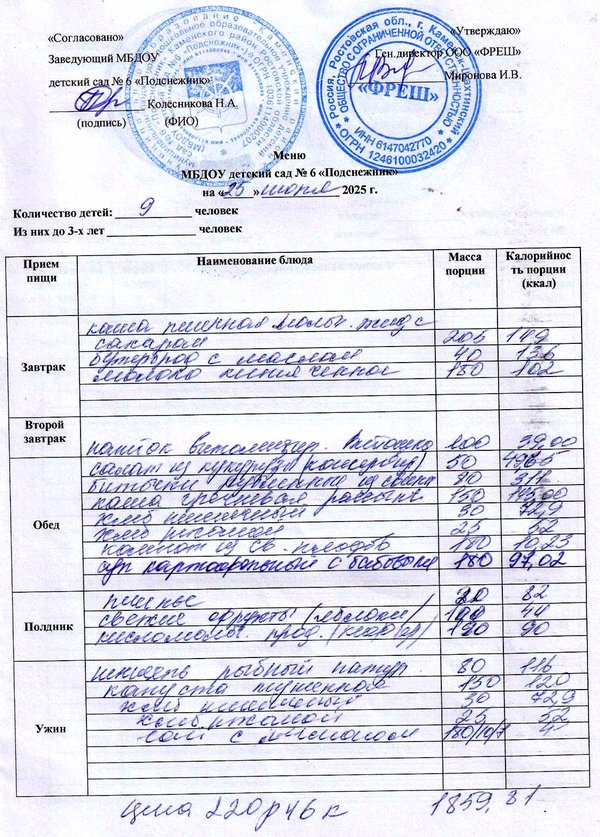 «Согласовано»
«Утверждаю»
Заведующий МБДОУ
Ген.директор ООО «ФРЕШ»
детский сад № 6 «Подснежник»
Миронова И.В.
Колесникова Н.А.
(подпись) (ФИО)
Россия, Ростовская обл., г. Каменск-Шахтинский
ОБЩЕСТВО С ОГРАНИЧЕННОЙ ОТВЕТСТВЕННОСТЬЮ
«ФРЕШ»
ИНН 6147042770
ОГРН 1246100032420
Меню
МБДОУ детский сад № 6 «Подснежник»
на «25» июля 2025 г.
Количество детей: 9 человек
Из них до 3-х лет человек
Прием пищи Наименование блюда Масса порции Калорийность порции (ккал)
Завтрак
каша пшенная молоч. жид с
сахаром 205 149
бутерброд с маслом 40 136
молоко кипяченное 180 102
Второй завтрак
напиток витаминизир. Витошка 200 39,00
Обед
салат из кукурузы (консервир) 50
биточки 80 311
каша гречневая рассып. 150
хлеб пшеничный 30 72,9
хлеб ржаной 25 52
компот из св. плодов 180
суп картофельный с бобовыми 180 97,02
Полдник
печенье 20 82
свежие фрукты (яблоки) 100 44
кисломолоч. прод. (кефир) 180 90
Ужин
рыбный натур. 80 116
капуста тушенная 130 120
хлеб пшеничный 30 72,9
хлеб ржаной 25 52
чай с лимоном 180/10/7
Цена 220р46к 1859,81